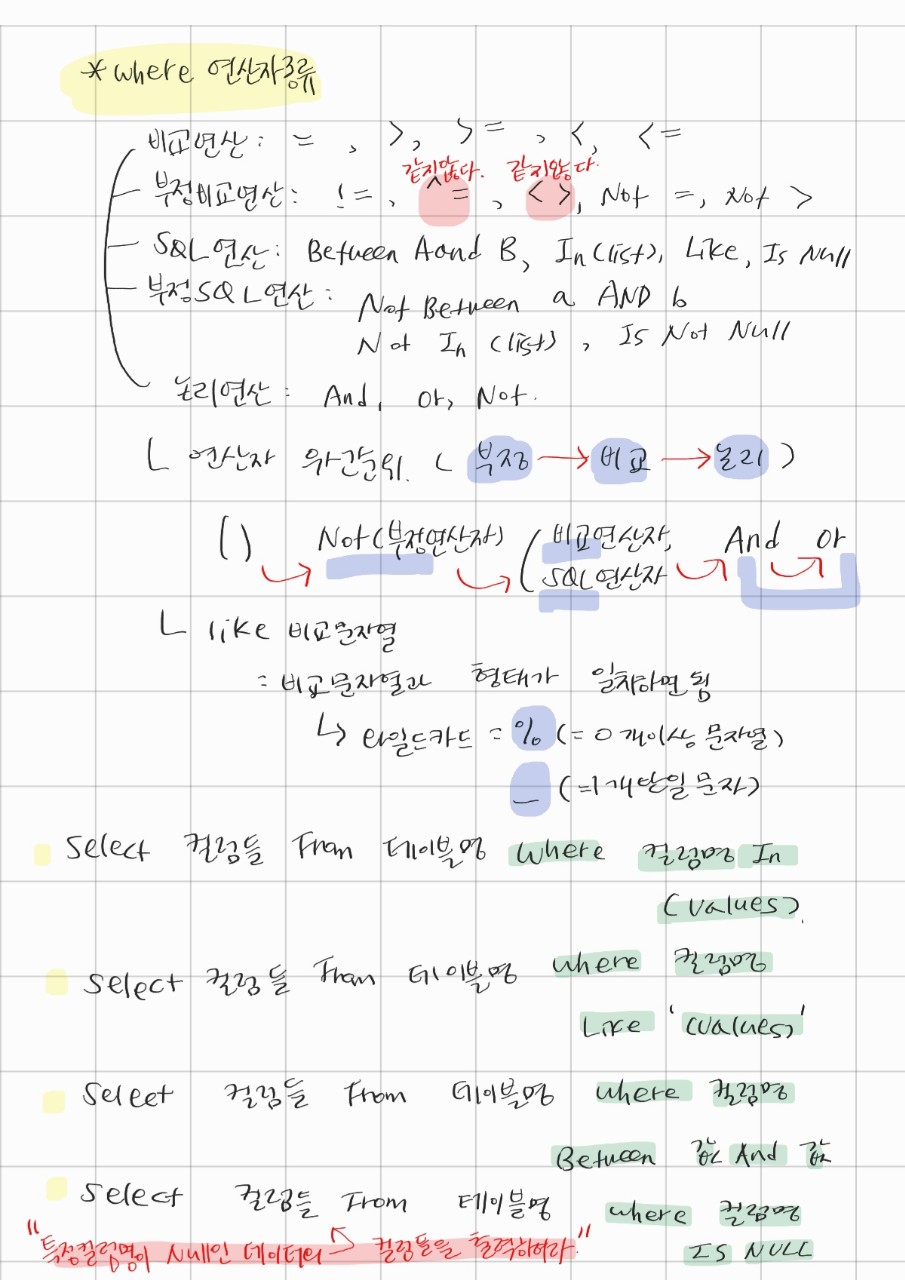 * where 연산자종류
비교연산 : = , >, >= , <, <=
같지않다. 같지않다.
부정비교연산 : != , ^= , <>, Not =, Not >
SQL연산 : Between A and B, In(list), Like, Is Null
부정SQL연산 : Not Between a AND b
Not In (list) , Is Not Null
논리연산 : And, or, Not.
ㄴ 연산자 우선순위. ( 부정 → 비교 → 논리 )
() Not(부정연산자) ( 비교연산자, And or
SQL연산자
ㄴ like 비교문자열
= 비교문자열과 형태가 일치하면 됨
↳ 와일드카드 = % (= 0개이상 문자열)
_ (=1개 단일 문자)
Select 컬럼들 From 테이블명 where 컬럼명 In
(values).
Select 컬럼들 From 테이블명 where 컬럼명
Like '(values)'
Select 컬럼들 From 테이블명 where 컬럼명
Between 값 And 값
Select 컬럼들 From 테이블명 where 컬럼명
IS NULL
"특정컬럼명이 Null인 데이터의 → 컬럼들을 출력하여라"